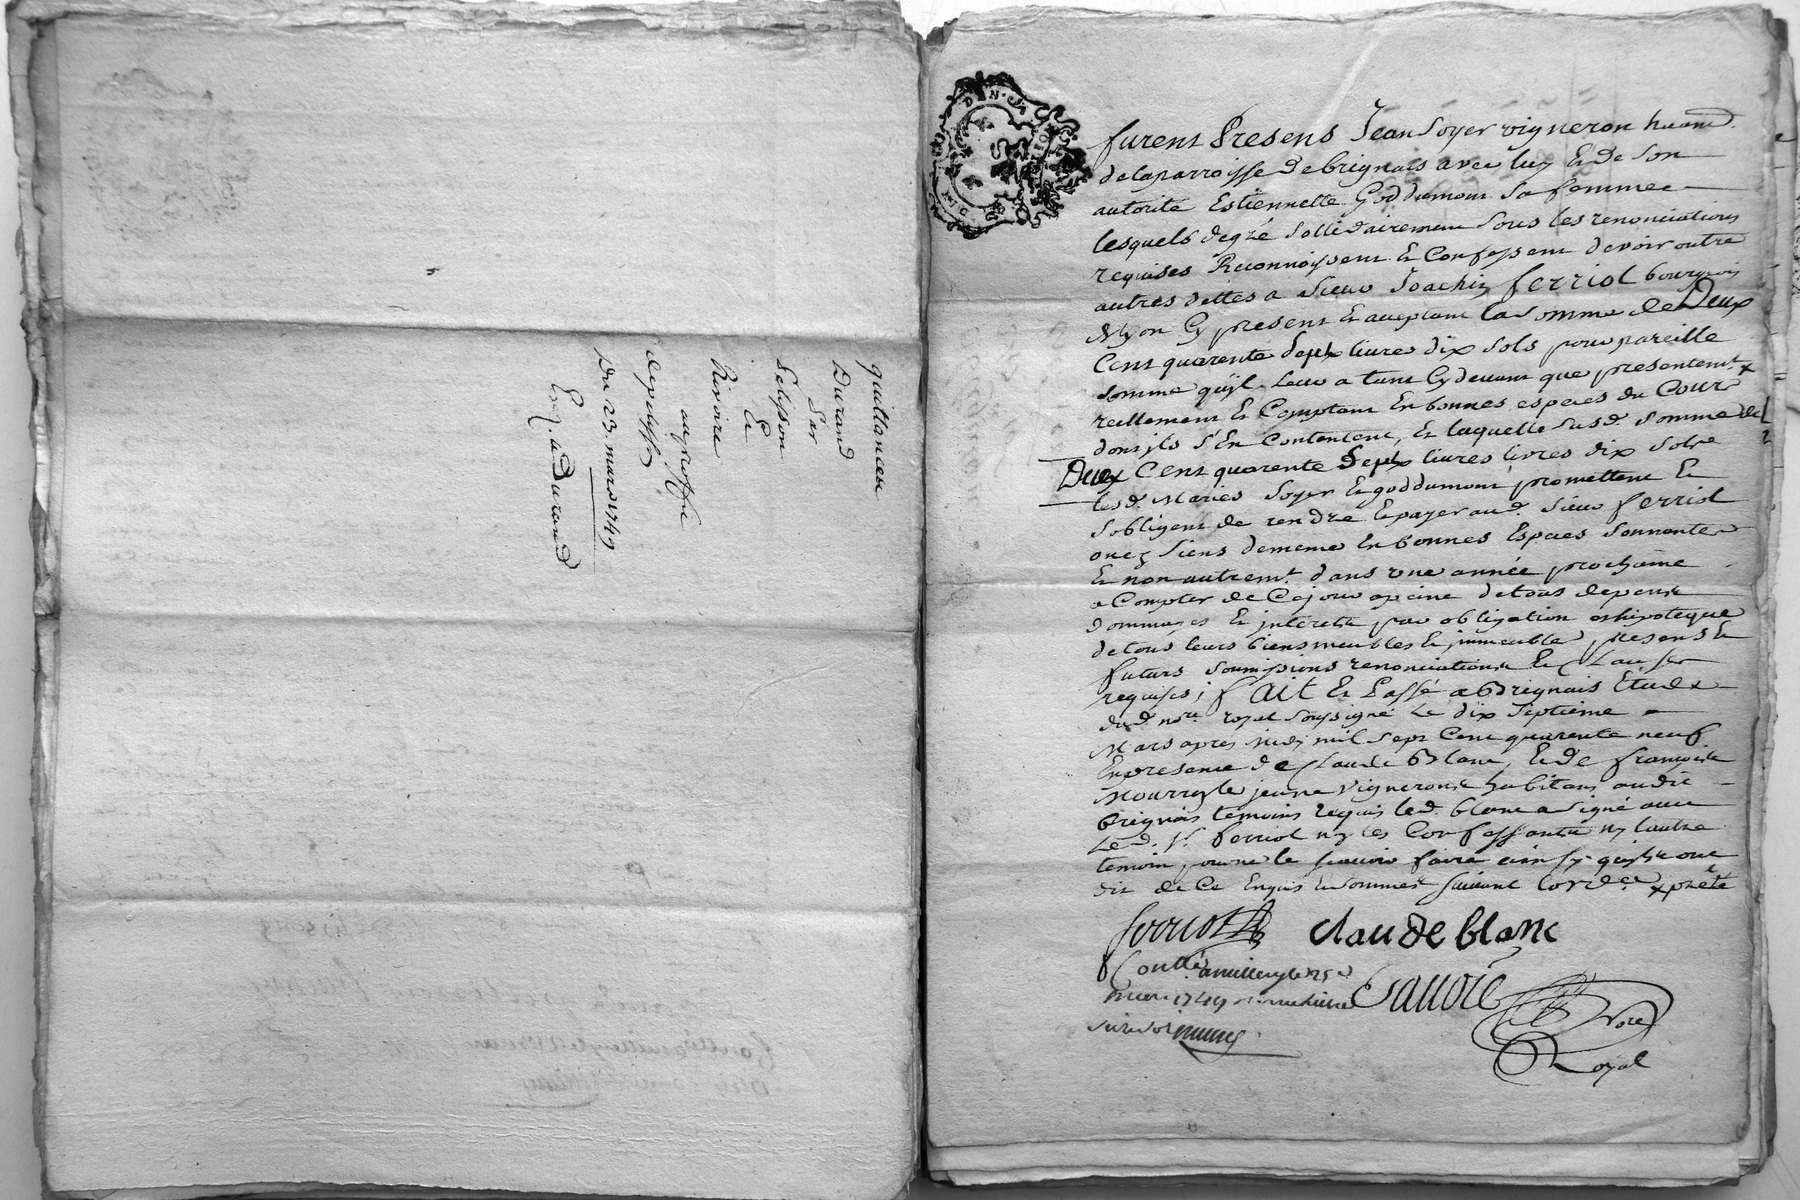 quittances
Durand
Ser
Selisson
Et
Rivoire
au proffit
Du 23. mars 1749
Exp. a d Durand
furent Presens Jean Soyer vigneron habitant
de la parroisse de brignais avec luy Et de son
autorité Estiennette Goddumont sa femme
lesquels de gré sollidairement sous les renonciations
requises Reconnoissent Et Confessent devoir outre
autres dettes a sieur Joachin ferriol bourgeois
de lyon Cy present Et acceptant la somme de Deux
Cent quarente Sept livres dix sols pour pareille
somme quil leur a tant Cy devant que presentemt
reellement Et Comptant En bonnes especes du Cour
dont ils s'En Contentent, Et laquelle susd. somme de
Deux Cent quarente Sept livres livres dix sols
lesd. Mariés Soyer Et goddumont promettent Et
sobligent de rendre Et payer aud. sieur ferriol
ou ez siens de meme En bonnes Especes sonnantes
Et non autremt. dans une année prochaine
a Compter de Ce jour a peine de tous depens
dommages Et interets par obligation Et hipoteque
de tous leurs biens meubles Et immeubles presens Et
futurs soumissions renonciations Et Clauses
requises; fait Et Passé a Brignais Etude
dud. nore. royal soussigné Le dix Septième
Mars apres midy mil Sept Cent quarente neuf
En presence de Claude Blanc, Et de françois
Mourry le jeune vignerons habitans audit
brignais temoins requis led. blanc a signé avec
Led. sr. ferriol ny les Confessants ny lautre
temoin pour ne le scavoir faire ainsy quils ont
dit de Ce Enquis Et sommés suivant lordce x preté
ferriol Claude blanc
Contlé a millery le 25e
mars 1749
Savoie
Nore
Royal